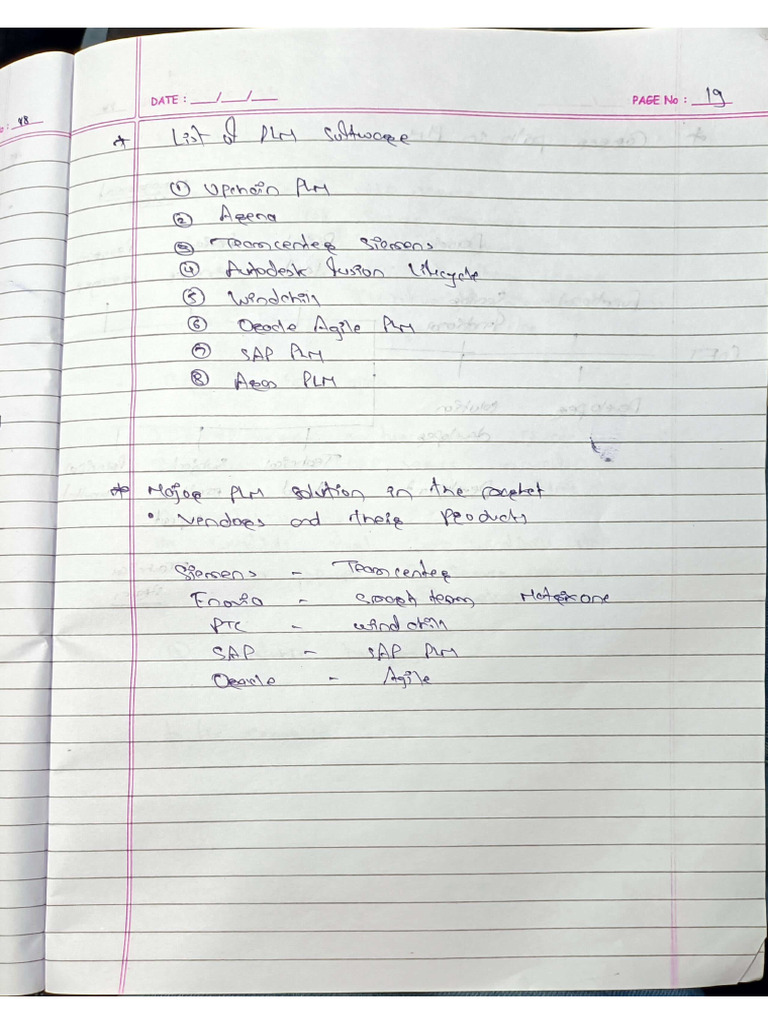 48
DATE : __/__/__
PAGE No : 19
* List of PLM Software
① Upchain PLM
② Arena
③ Teamcenter Siemens
④ Autodesk fusion Lifecycle
⑤ Windchill
⑥ Oracle Agile PLM
⑦ SAP PLM
⑧ Aras PLM
* Major PLM solution in the market
• Vendors and their products
Siemens - Teamcenter
Enovia - Smarteam Matrixone
PTC - windchill
SAP - SAP PLM
Oracle - Agile